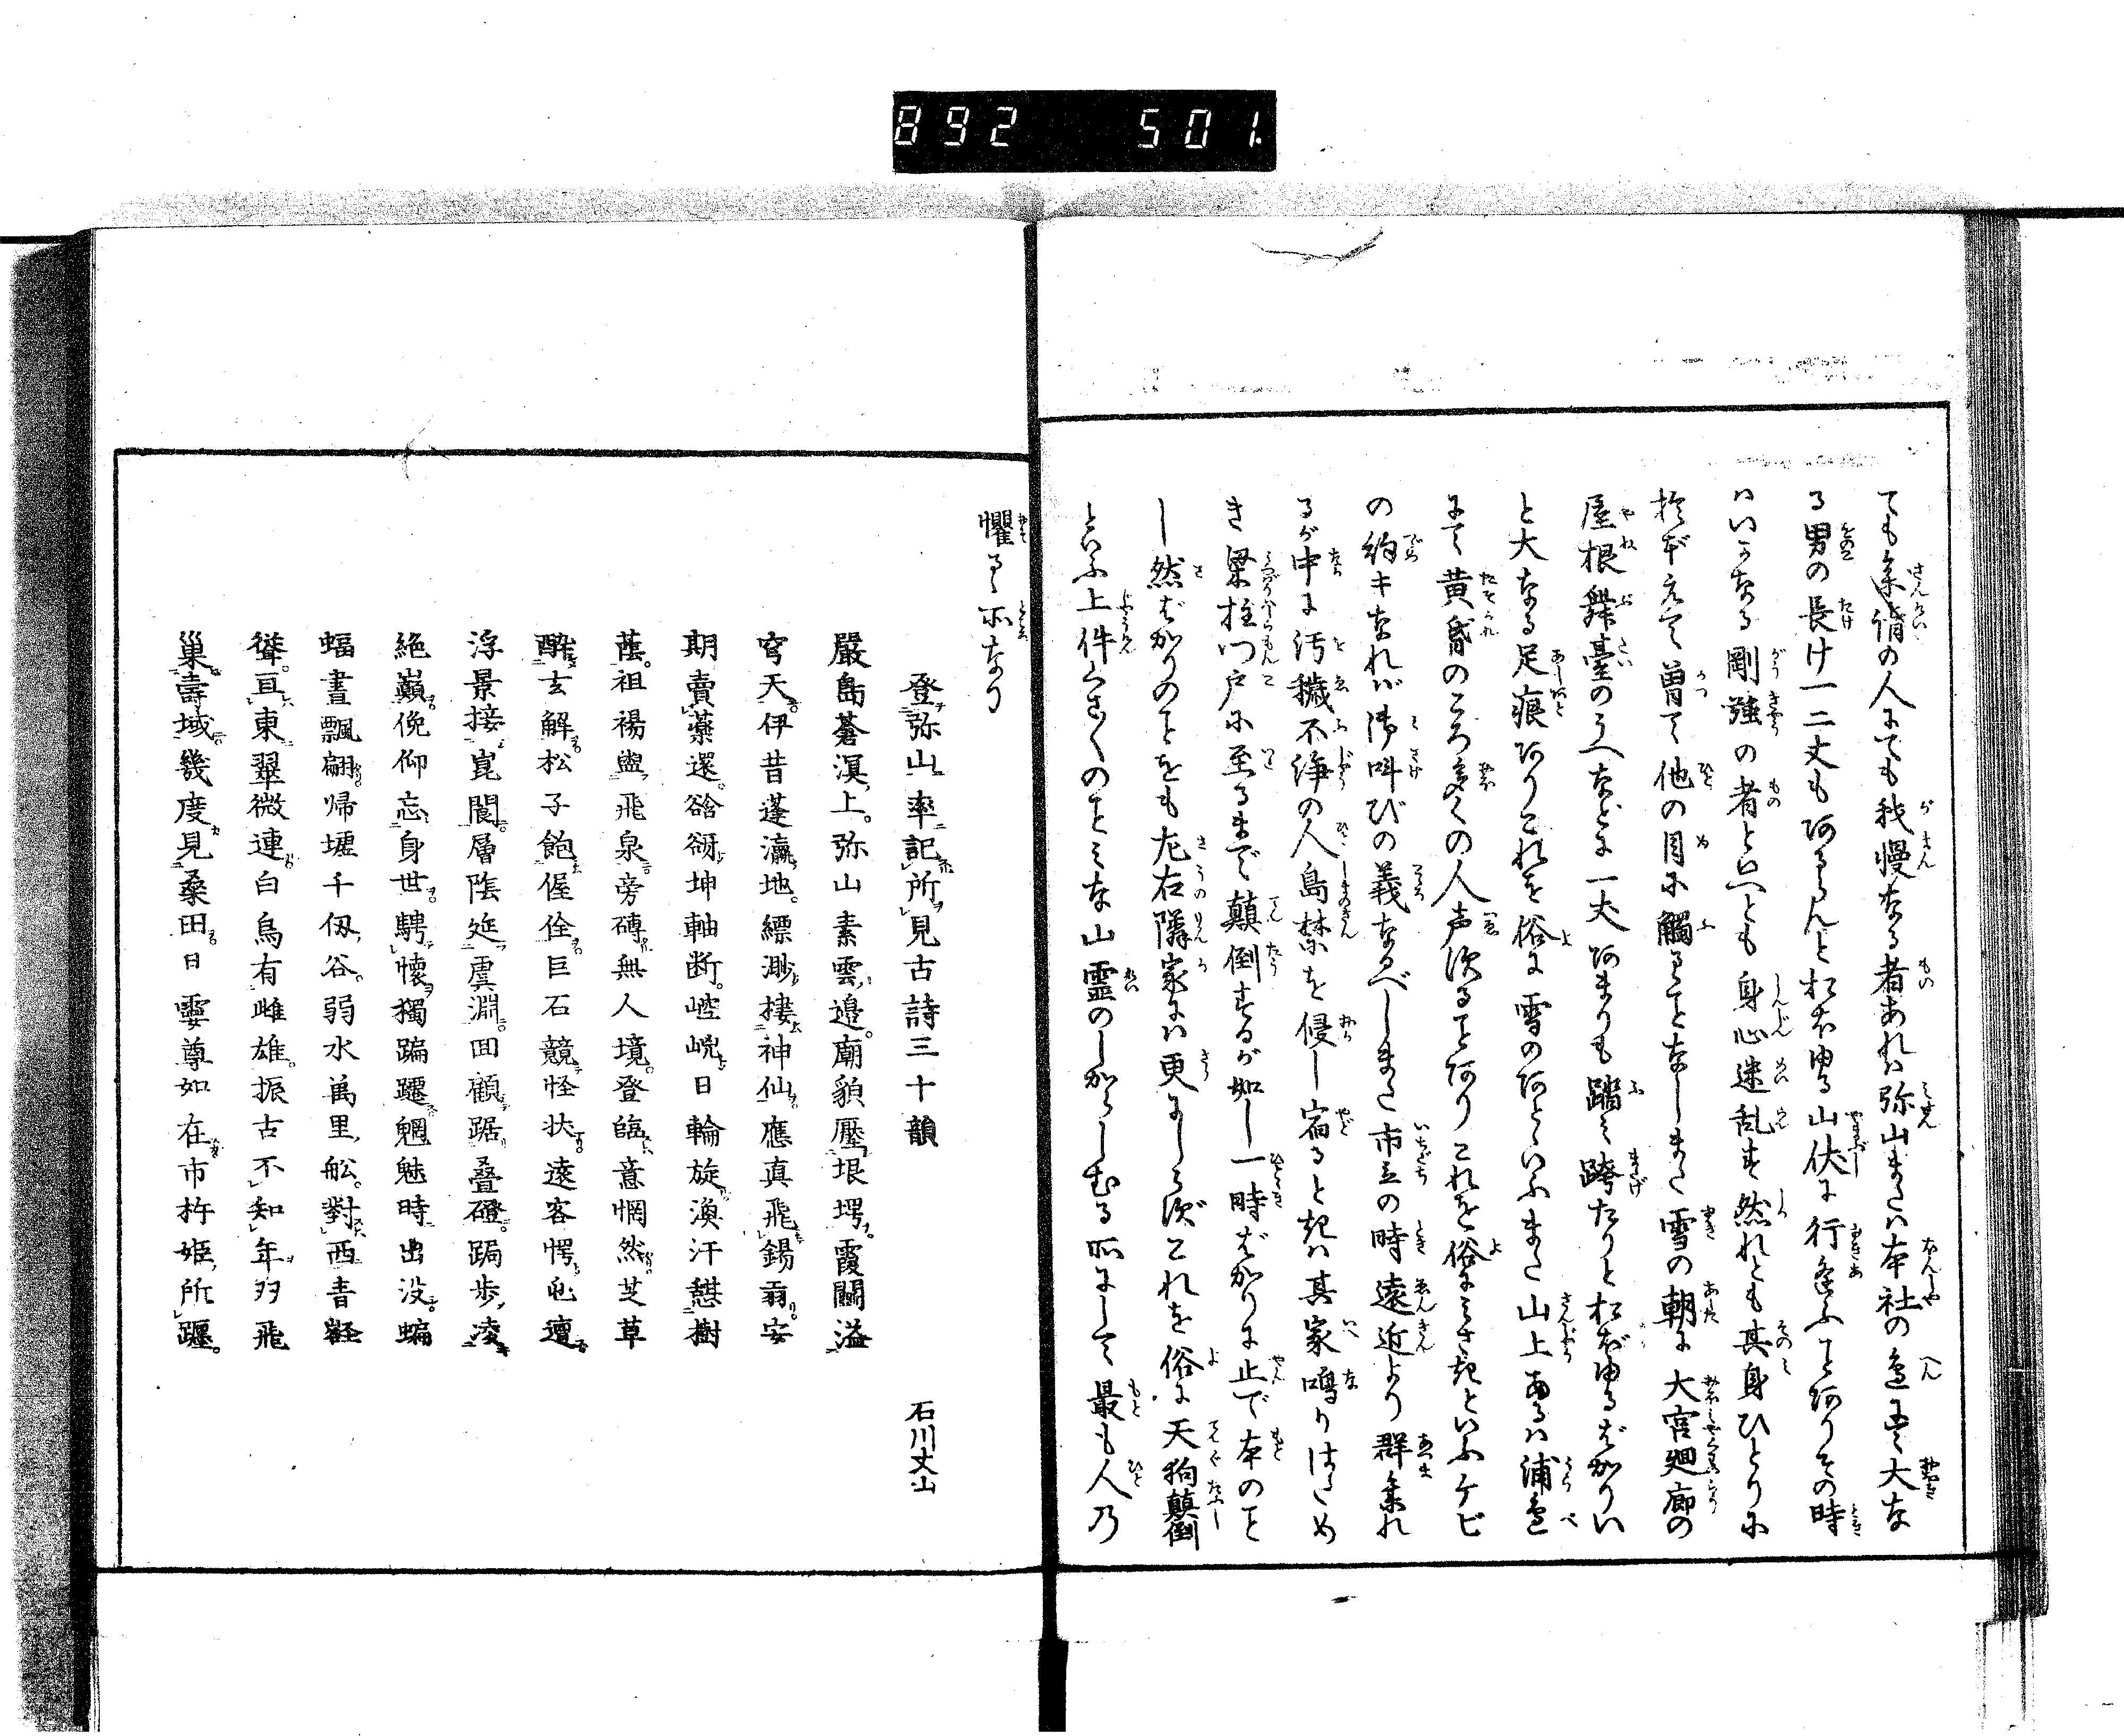 892 501.
ても参詣の人にても我慢なる者あれば弥山または本社の邉にて大な
る男の長け一二丈もあるらんとおもほゆる山伏に行逢ふことありその時
はいかなる剛強の者といへども身心迷乱す然れども其身ひとりに
おぼえて曽て他の目に觸ることなしまた雪の朝に大宮廻廊の
屋根舞臺のうへなどに一丈あまりも踏み跨たりとおぼゆるばかりい
と大なる足痕ありこれを俗に雪のあとゝいふまた山上あるは浦邉
にて黄昏のころ多くの人声することありこれを俗にミさきといふケビ
の約キなれバ御叫びの義なるべしまた市立の時遠近より群集れ
るが中に汚穢不浄の人島禁を侵し宿るときは其家鳴りはため
き梁柱門戸に至るまで顛倒するが如し一時ばかりに止で本のこと
し然ばかりのことをも左右隣家には更にしらずこれを俗に天狗顛倒
といふ上件くさ〴〵のことミな山霊のしからしむる所にして最も人乃
懼るゝ所なり
登弥山率記所見古詩三十韻
石川丈山
嚴島蒼溟上弥山素雲邉廟貌壓垠堮霞關溢
穹天伊昔蓬瀛地縹渺棲神仙應真飛錫翁安
期賣藥還谽谺坤軸断崆峴日輪旋澳汗憇樹
蔭祖裼盥飛泉旁磚無人境登臨意惘然芝草
酔玄解松子飽偓佺巨石競怪状遠客愕屯邅
浮景接崑閬層陰延虞淵囬顧踞叠磴跼歩凌
絶巓俛仰忘身世騁懐獨蹁躚魍魅時出没蝙
蝠晝飄翩帰墟千仭谷弱水萬里舩對西青嶽
聳亘東翠微連白烏有雌雄振古不知年羽飛
巣壽域幾度見桑田日霎尊如在市杵姫所躔